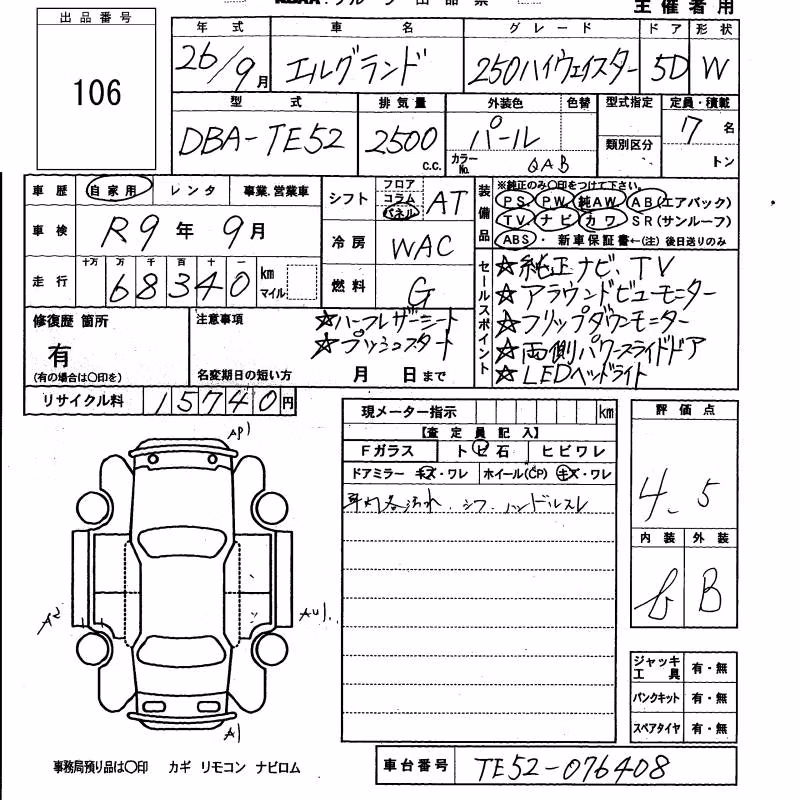 主催者用
出品番号
106
年式 車名 グレード ドア 形状
26/9月 エルグランド 250ハイウェイスター 5D W
型式 排気量 外装色 色替 型式指定 定員・積載
DBA-TE52 2500 c.c. パール 類別区分 7名
カラーNo. QAB トン
車歴 自家用 レンタ 事業.営業車
シフト フロア コラム パネル AT
装備品 ※純正のみ○印をつけて下さい。
PS. PW. 純AW. AB(エアバック)
TV. ナビ カワ SR(サンルーフ)
ABS・新車保証書←(注)後日送りのみ
車検 R9年9月
冷房 WAC
走行 十万 万 千 百 十 一
68340 km マイル
燃料 G
セールスポイント
☆純正ナビ、TV
☆アラウンドビューモニター
☆フリップダウンモニター
☆両側パワースライドドア
☆LEDヘッドライト
修復歴 箇所
有
(有の場合は○印を)
注意事項 ☆ハーフレザーシート
☆プッシュスタート
名変期日の短い方 月 日まで
リサイクル料 15740円
現メーター指示 km
【査定員記入】
Fガラス トビ石 ヒビワレ
ドアミラー キズ・ワレ ホイール(CP) キズ・ワレ
ハンドルスレ
評価点
4.5
内装 外装
b B
A1
A2
ジャッキ工具 有・無
パンクキット 有・無
スペアタイヤ 有・無
事務局預り品は○印 カギ リモコン ナビロム
車台番号 TE52-076408